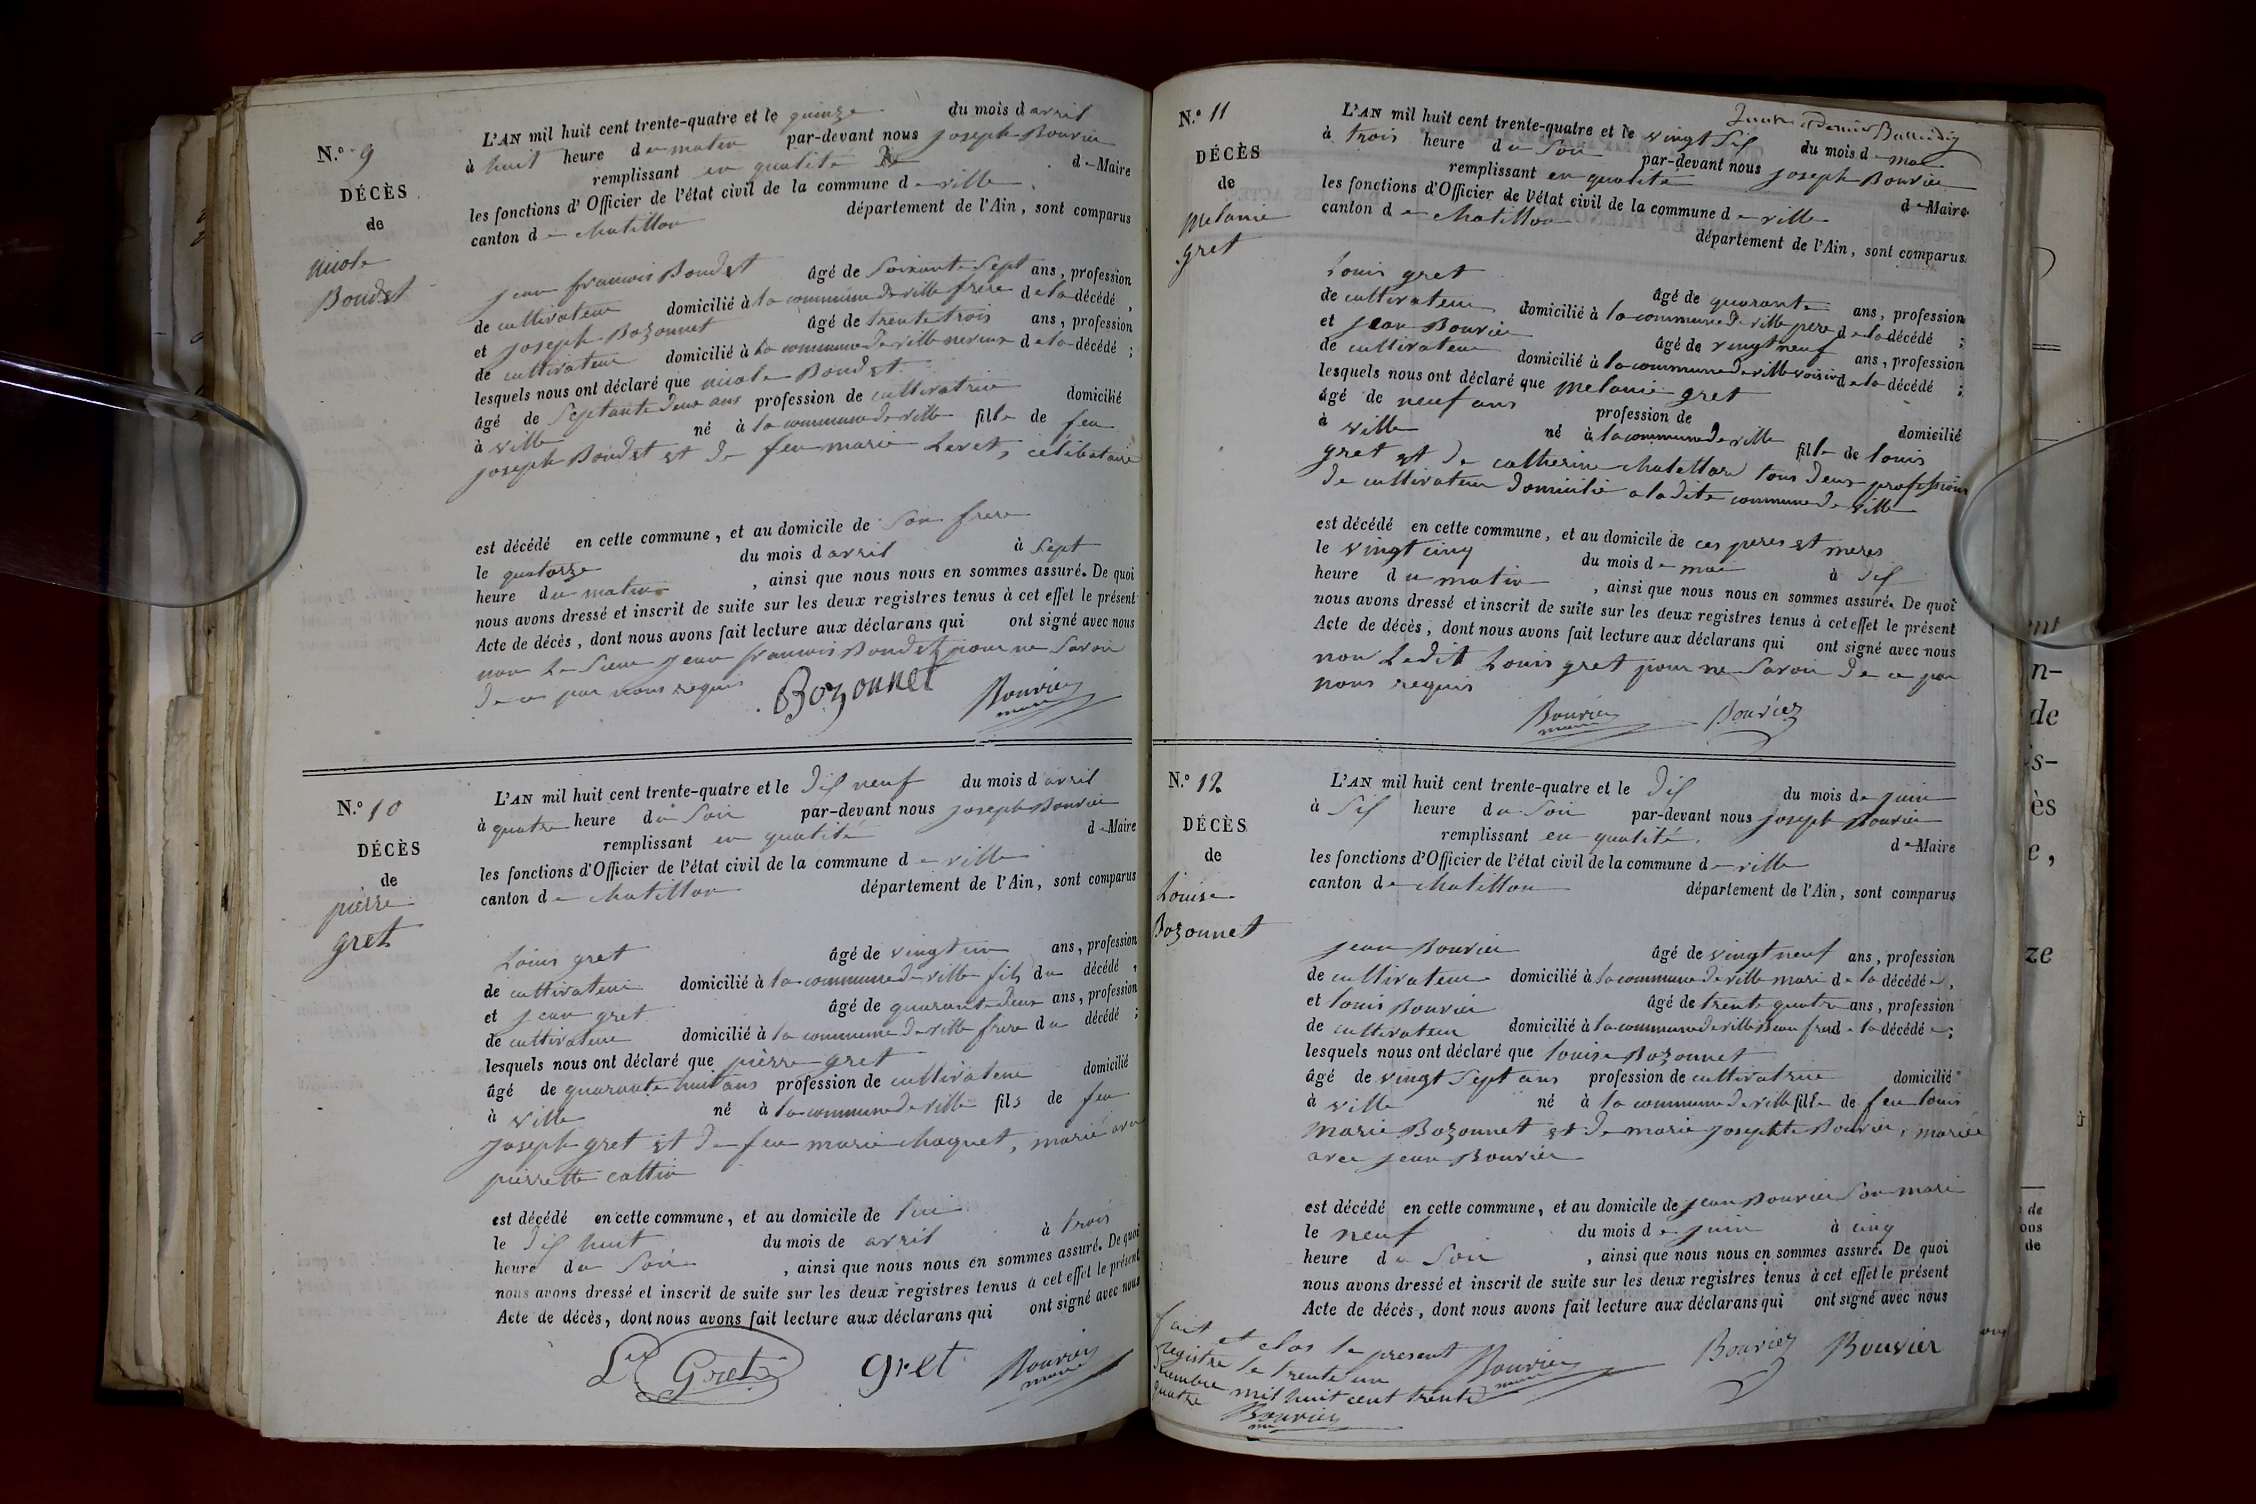 N.º 9
DÉCÈS
de
nicole
Boudet
L'AN mil huit cent trente-quatre et le quinze du mois d avril
à huit heure du matin par-devant nous joseph Bouvier
remplissant en qualité de Maire
les fonctions d'Officier de l'état civil de la commune de ville
canton de chatillon département de l'Ain, sont comparus
jean francois Boudet âgé de Soixante Sept ans, profession
de cultivateur domicilié à la commune de ville frere de la décédé,
et joseph Bozonnet âgé de trente trois ans, profession
de cultivateur domicilié à la commune de ville neveux de la décédé;
lesquels nous ont déclaré que nicole Boudet
âgé de Septante deux ans profession de cultivatrice domicilié
à ville né à la commune de ville fille de feu
joseph Boudet et de feu marie Levet, célibataire
est décédé en cette commune, et au domicile de Son frere
le quatorze du mois d avril à Sept
heure du matin, ainsi que nous nous en sommes assuré. De quoi
nous avons dressé et inscrit de suite sur les deux registres tenus à cet effet le présent
Acte de décès, dont nous avons fait lecture aux déclarans qui ont signé avec nous
non Le Sieur jean francois Boudet pour ne Savoir
de ce par nous requis
Bozonnet Bouvier
maire
N.º 10
DÉCÈS
de
pierre
gret
L'AN mil huit cent trente-quatre et le dix neuf du mois d avril
à quatre heure du Soir par-devant nous joseph Bouvier
remplissant en qualité de Maire
les fonctions d'Officier de l'état civil de la commune de ville
canton de chatillon département de l'Ain, sont comparus
Louis gret âgé de vingt un ans, profession
de cultivateur domicilié à la commune de ville fils du décédé,
et jean gret âgé de quarante deux ans, profession
de cultivateur domicilié à la commune de ville frere du décédé;
lesquels nous ont déclaré que pierre gret
âgé de quarante huit ans profession de cultivateur domicilié
à ville né à la commune de ville fils de feu
joseph gret et de feu marie chaquet, marié avec
pierrette cattin
est décédé en cette commune, et au domicile de lui
le dix huit du mois de avril à trois
heure du Soir, ainsi que nous nous en sommes assuré. De quoi
nous avons dressé et inscrit de suite sur les deux registres tenus à cet effet le présent
Acte de décès, dont nous avons fait lecture aux déclarans qui ont signé avec nous
Gret gret Bouvier
maire
N.º 11
DÉCÈS
de
melanie
gret
L'AN mil huit cent trente-quatre et le vingt Six du mois de mai
à trois heure du Soir par-devant nous joseph Bouvier
remplissant en qualité de Maire
les fonctions d'Officier de l'état civil de la commune de ville
canton de chatillon département de l'Ain, sont comparus
Louis gret âgé de quarante ans, profession
de cultivateur domicilié à la commune de ville pere de la décédé;
et jean Bouvier âgé de vingt neuf ans, profession
de cultivateur domicilié à la commune de ville voisin de la décédé;
lesquels nous ont déclaré que melanie gret
âgé de neuf ans profession de domicilié
à ville né à la commune de ville fille de louis
gret et de catherine chatellard tous deux profession
de cultivateur domicilié a ladite commune de ville
est décédé en cette commune, et au domicile de ces peres et meres
le vingt cinq du mois de mai à dix
heure du matin, ainsi que nous nous en sommes assuré. De quoi
nous avons dressé et inscrit de suite sur les deux registres tenus à cet effet le présent
Acte de décès, dont nous avons fait lecture aux déclarans qui ont signé avec nous
non Ledit Louis gret pour ne Savoir de ce par
nous requis
Bouvier Bouvier
maire
N.º 12
DÉCÈS
de
Louise
Bozonnet
L'AN mil huit cent trente-quatre et le dix du mois de juin
à Six heure du Soir par-devant nous joseph Bouvier
remplissant en qualité de Maire
les fonctions d'Officier de l'état civil de la commune de ville
canton de chatillon département de l'Ain, sont comparus
jean Bouvier âgé de vingt neuf ans, profession
de cultivateur domicilié à la commune de ville mari de la décédée,
et louis Bouvier âgé de trente quatre ans, profession
de cultivateur domicilié à la commune de ville Beau frere de la décédée;
lesquels nous ont déclaré que louise Bozonnet
âgé de vingt Sept ans profession de cultivatrice domicilié
à ville né à la commune de ville fille de feu louis
marie Bozonnet et de marie josephte Bouvier, mariée
avec jean Bouvier
est décédé en cette commune, et au domicile de jean Bouvier Son mari
le neuf du mois de juin à cinq
heure du Soir, ainsi que nous nous en sommes assuré. De quoi
nous avons dressé et inscrit de suite sur les deux registres tenus à cet effet le présent
Acte de décès, dont nous avons fait lecture aux déclarans qui ont signé avec nous
Bouvier Bouvier Bouvier
maire
fait et clos le present
registre le trente un
decembre mil huit cent trente
quatre
Bouvier